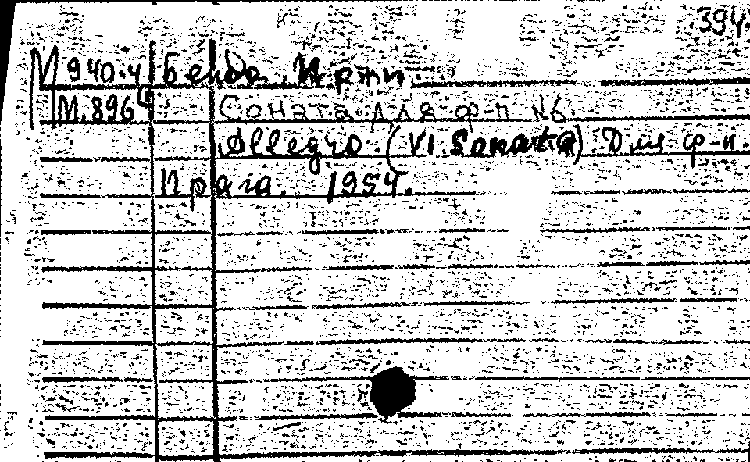 394.
М 940.4 Бенда, Иржи.
М.896 Соната для ф-п №6
Allegro. (VI. Sonata). Для ф-п.
Прага. 1954.